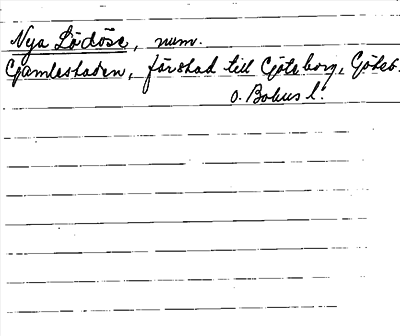 Nya Lödöse, num.
Gamlestaden, förstad till Göteborg, Göteb.
o. Bohus l.